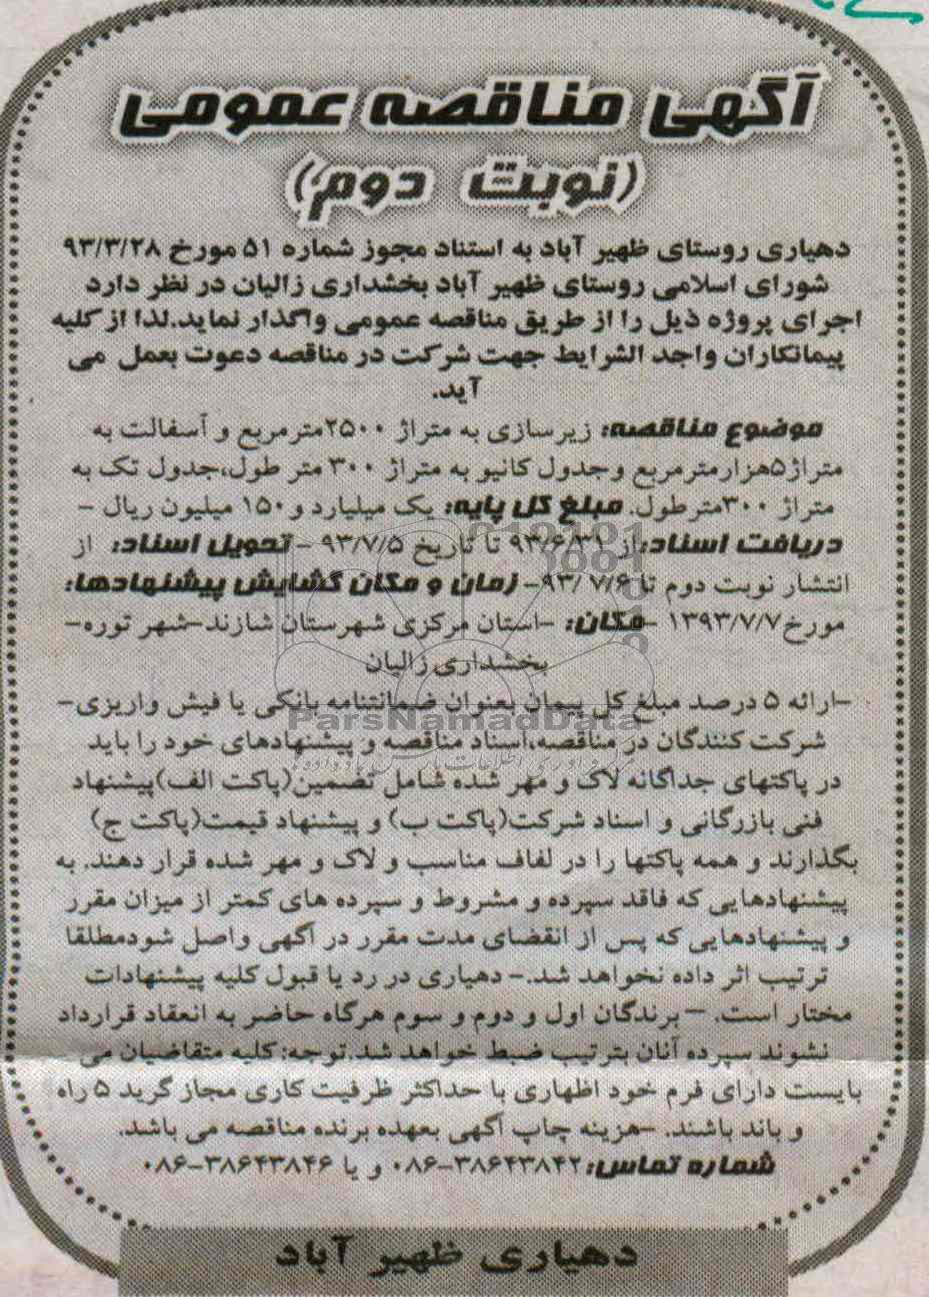 آگهی مناقصه عمومی
(نوبت دوم)
دهیاری روستای ظهیر آباد به استناد مجوز شماره ۵۱ مورخ ۹۳/۳/۲۸
شورای اسلامی روستای ظهیر آباد بخشداری زالیان در نظر دارد
اجرای پروژه ذیل را از طریق مناقصه عمومی واگذار نماید.لذا از کلیه
پیمانکاران واجد الشرایط جهت شرکت در مناقصه دعوت بعمل می
آید.
موضوع مناقصه: زیرسازی به متراژ ۲۵۰۰مترمربع و آسفالت به
متراژ۵هزارمترمربع وجدول کانیو به متراژ ۳۰۰ متر طول،جدول تک به
متراژ ۳۰۰مترطول. مبلغ کل پایه: یک میلیارد و۱۵۰ میلیون ریال -
دریافت اسناد:از ۹۳/۶/۳۱ تا تاریخ ۹۳/۷/۵ -تحویل اسناد: از
انتشار نوبت دوم تا ۹۳/۷/۶- زمان و مکان گشایش پیشنهادها:
مورخ۱۳۹۳/۷/۷ -مکان: -استان مرکزی شهرستان شازند-شهر توره-
بخشداری زالیان
-ارائه ۵ درصد مبلغ کل پیمان بعنوان ضمانتنامه بانکی یا فیش واریزی-
ParsNamadData
شرکت کنندگان در مناقصه،اسناد مناقصه و پیشنهادهای خود را باید
در پاکتهای جداگانه لاک و مهر شده شامل تضمین(پاکت الف)پیشنهاد
فنی بازرگانی و اسناد شرکت(پاکت ب) و پیشنهاد قیمت(پاکت ج)
بگذارند و همه پاکتها را در لفاف مناسب و لاک و مهر شده قرار دهند. به
پیشنهادهایی که فاقد سپرده و مشروط و سپرده های کمتر از میزان مقرر
و پیشنهادهایی که پس از انقضای مدت مقرر در آگهی واصل شودمطلقا
ترتیب اثر داده نخواهد شد.- دهیاری در رد یا قبول کلیه پیشنهادات
مختار است. - برندگان اول و دوم و سوم هرگاه حاضر به انعقاد قرارداد
نشوند سپرده آنان بترتیب ضبط خواهد شد.توجه: کلیه متقاضیان می
بایست دارای فرم خود اظهاری با حداکثر ظرفیت کاری مجاز گرید ۵ راه
و باند باشند. -هزینه چاپ آگهی بعهده برنده مناقصه می باشد.
شماره تماس: ۳۸۶۴۳۸۴۲-۰۸۶ و یا ۳۸۶۴۳۸۴۶-۰۸۶
دهیاری ظهیر آباد